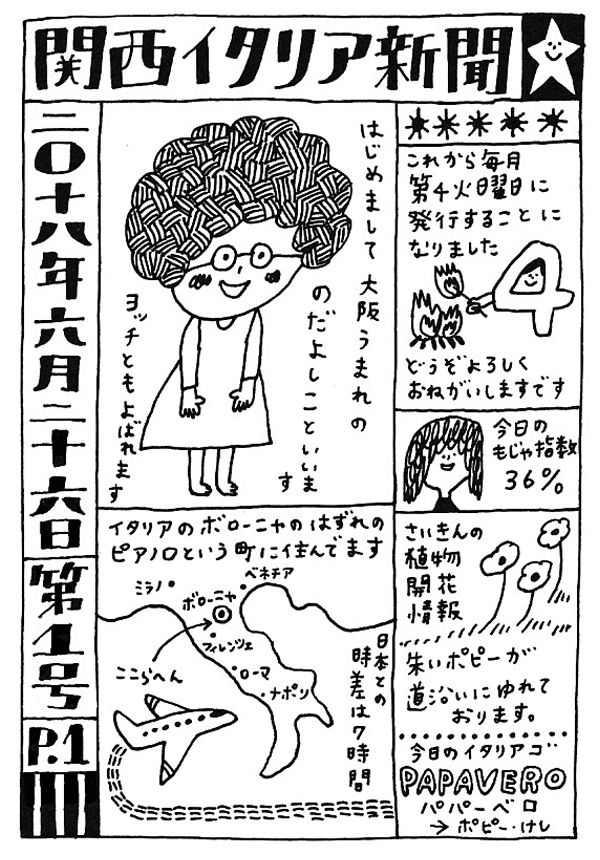 関西イタリア新聞
二〇十八年六月二十六日
第1号
P.1
はじめまして 大阪うまれの
のだよしこといいます
ヨッチともよばれます
これから毎月
第4火曜日に
発行することに
なりました
4
どうぞよろしく
おねがいしますです
今日の
もじゃ指数
36%
イタリアのボローニャのはずれの
ピアノロという町に住んでます
ミラノ
ベネチア
ボローニャ
フィレンツェ
ローマ
ナポリ
ここらへん
日本との
時差は7時間
さいきんの
植物
開花
情報
朱いポピーが
道沿いにゆれて
おります。
今日のイタリアゴ
PAPAVERO
パパーベロ
→ポピー・けし